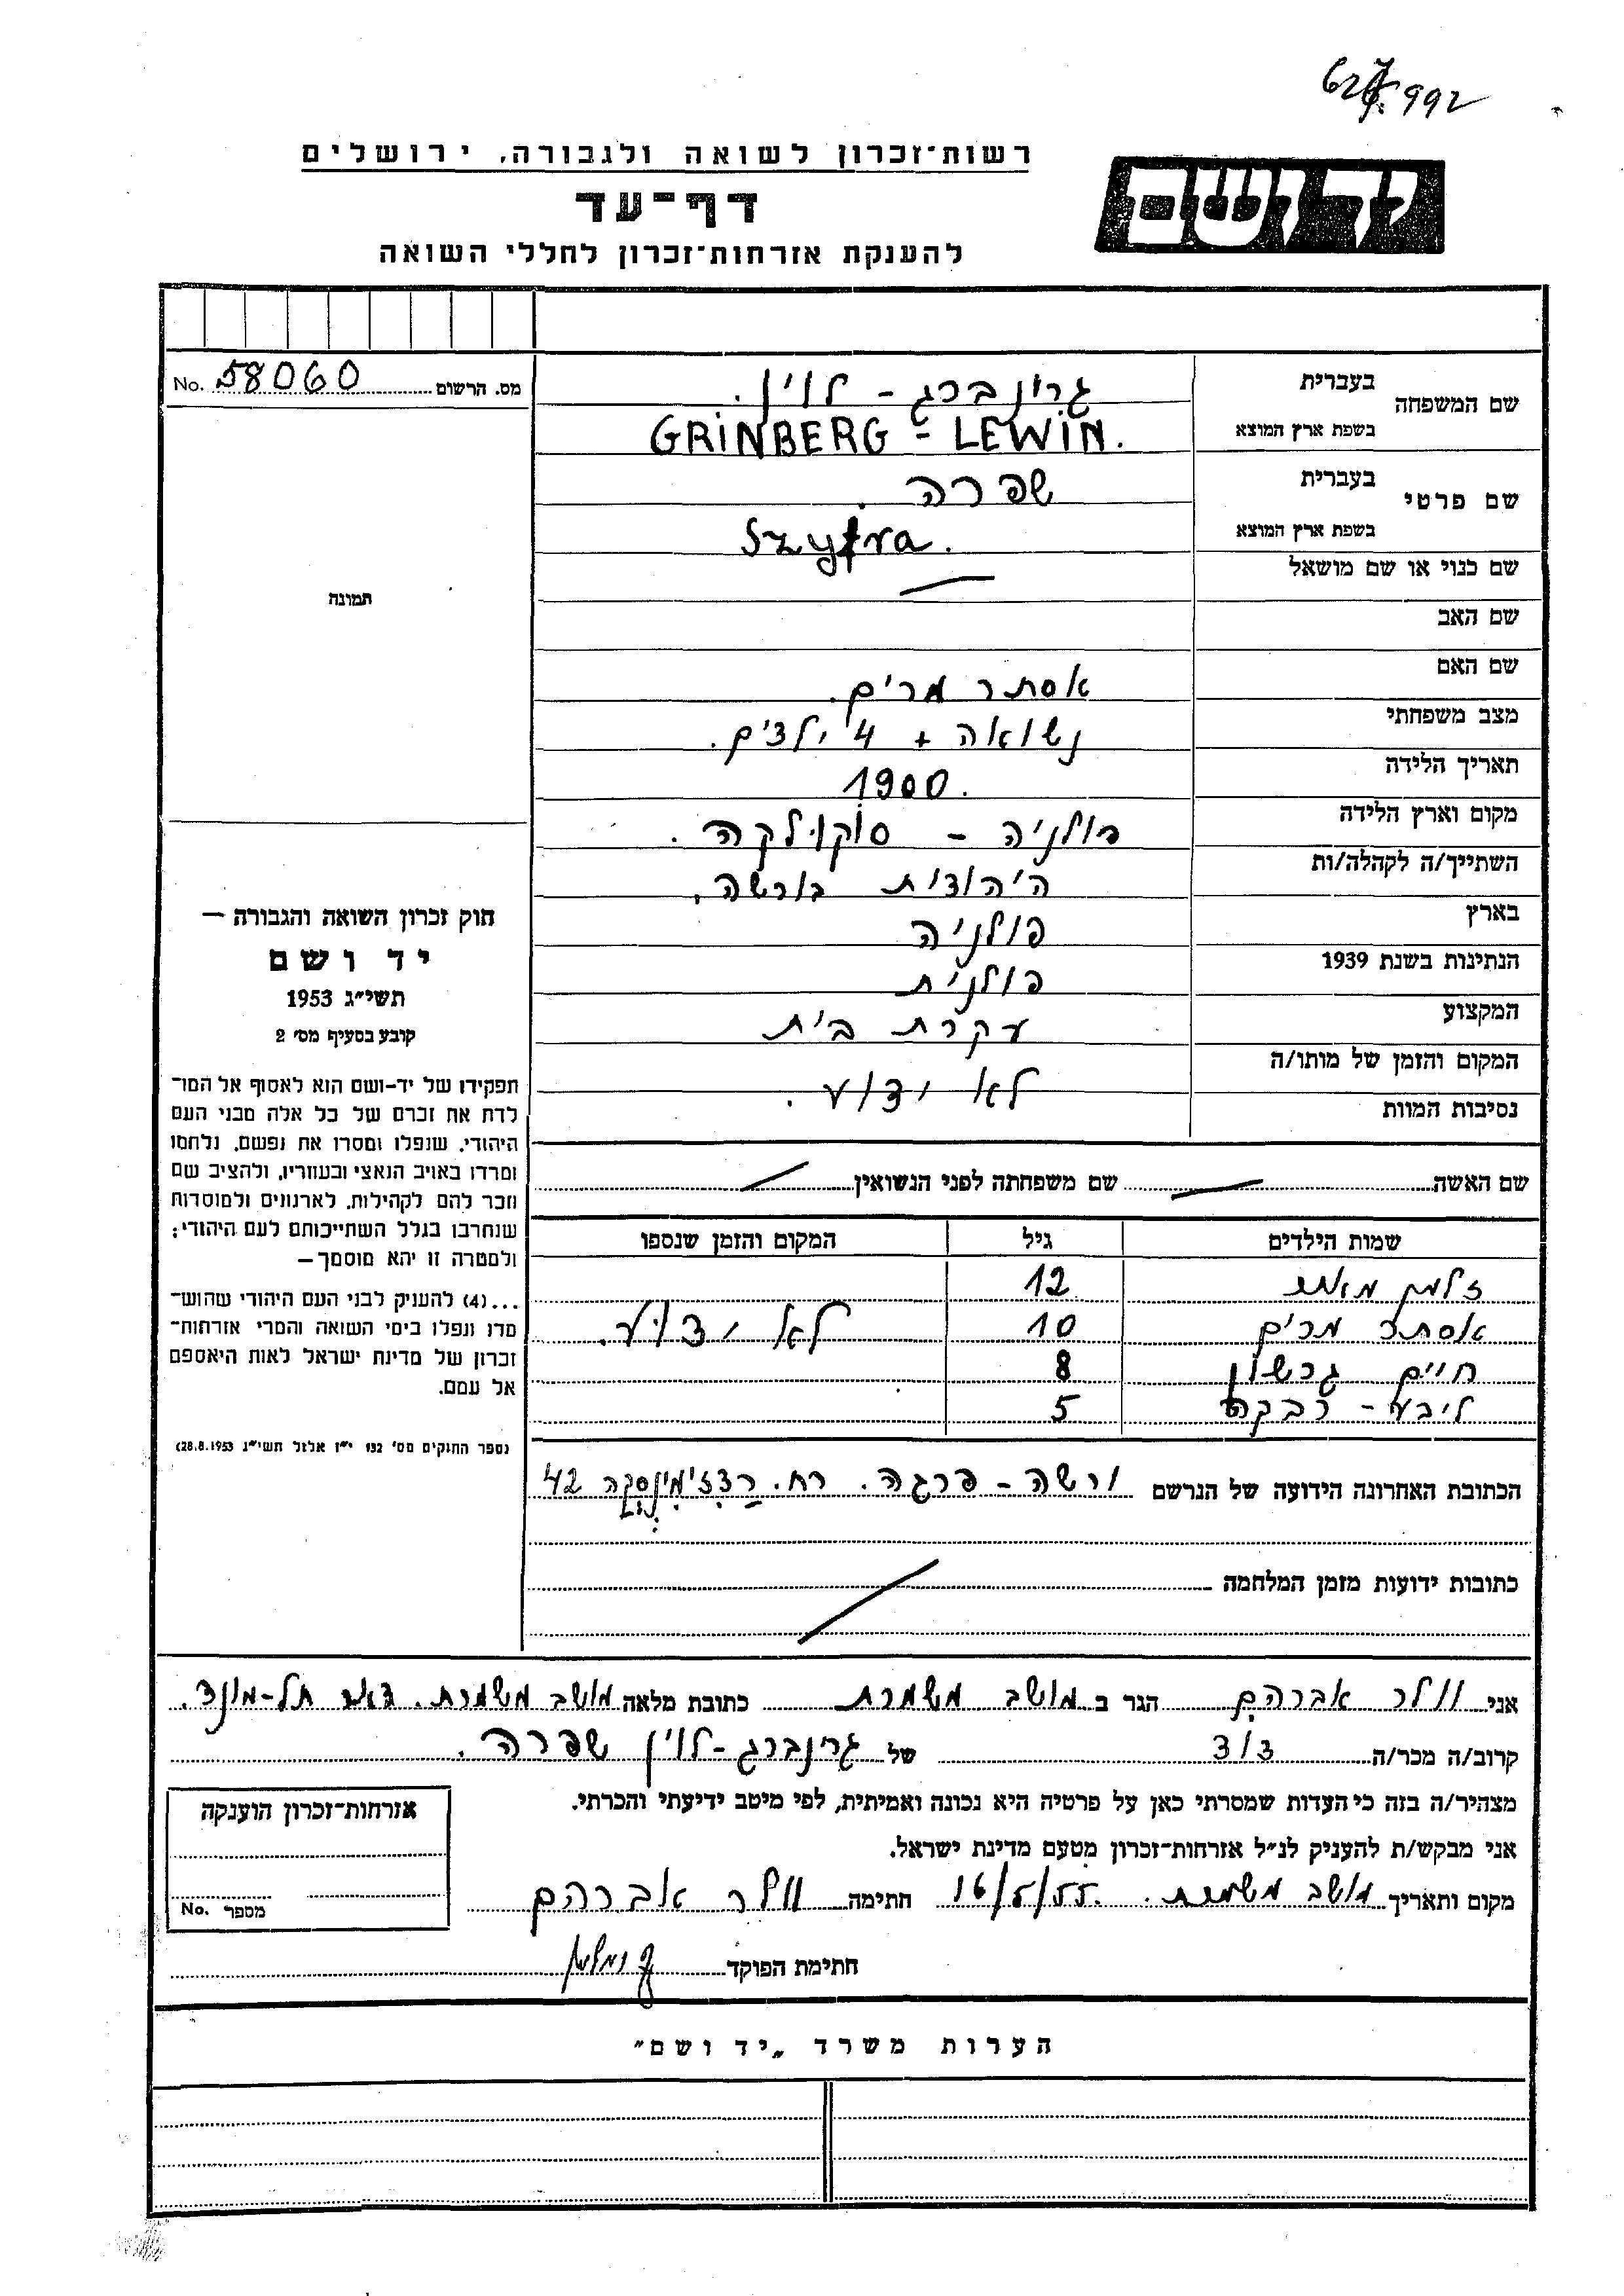 992
רשות־זכרון לשואה ולגבורה, ירושלים
יד ושם
דף־עד
להענקת אזרחות־זכרון לחללי השואה
No. 58060 מס. הרשום
שם המשפחה
בעברית גרונברג - לוין.
בשפת ארץ המוצא GRINBERG - LEWIN.
שם פרטי
בעברית שפרה.
בשפת ארץ המוצא Szyfra.
שם כנוי או שם מושאל
שם האב
שם האם אסתר מרים.
מצב משפחתי נשואה + 4 ילדים.
תאריך הלידה 1900.
מקום וארץ הלידה פולניה - סוקולקה.
השתייך/ה לקהלה/ות היהודית בורשה.
בארץ פולניה
הנתינות בשנת 1939 פולנית
המקצוע עקרת בית
המקום והזמן של מותו/ה
נסיבות המוות לא ידוע.
תמונה
חוק זכרון השואה והגבורה —
יד ושם
תשי״ג 1953
קובע בסעיף מס׳ 2
תפקידו של יד-ושם הוא לאסוף אל המו־
לדת את זכרם של כל אלה מבני העם
היהודי, שנפלו ומסרו את נפשם, נלחמו
ומרדו באויב הנאצי ובעוזריו, ולהציב שם
וזכר להם לקהילות, לארגונים ולמוסדות
שנחרבו בגלל השתייכותם לעם היהודי;
ולמטרה זו יהא מוסמך—
...(4) להעניק לבני העם היהודי שהוש־
מדו ונפלו בימי השואה והמרי אזרחות־
זכרון של מדינת ישראל לאות היאספם
אל עמם.
(ספר החוקים מס׳ 132 י״ז אלול תשי״ג 28.8.1953)
שם האשה שם משפחתה לפני הנשואין
שמות הילדים גיל המקום והזמן שנספו
זלמן 12
אסתר מרים 10 לא ידוע.
חיים גרשון 8
ליבע - רבקה 5
הכתובת האחרונה הידועה של הנרשם ורשה - פרגה. רח. רדז׳מינסקה 42
כתובות ידועות מזמן המלחמה
אני וולר אברהם הגר ב מושב משמרת כתובת מלאה מושב משמרת. דאר תל-מונד.
קרוב/ה מכר/ה דוד של גרינברג-לוין שפרה.
מצהיר/ה בזה כי העדות שמסרתי כאן על פרטיה היא נכונה ואמיתית, לפי מיטב ידיעתי והכרתי.
אני מבקש/ת להעניק לנ״ל אזרחות־זכרון מטעם מדינת ישראל.
מקום ותאריך מושב משמרת. 16/5/55 חתימה וולר אברהם
חתימת הפוקד
אזרחות־זכרון הוענקה
מספר No.
הערות משרד „יד ושם״